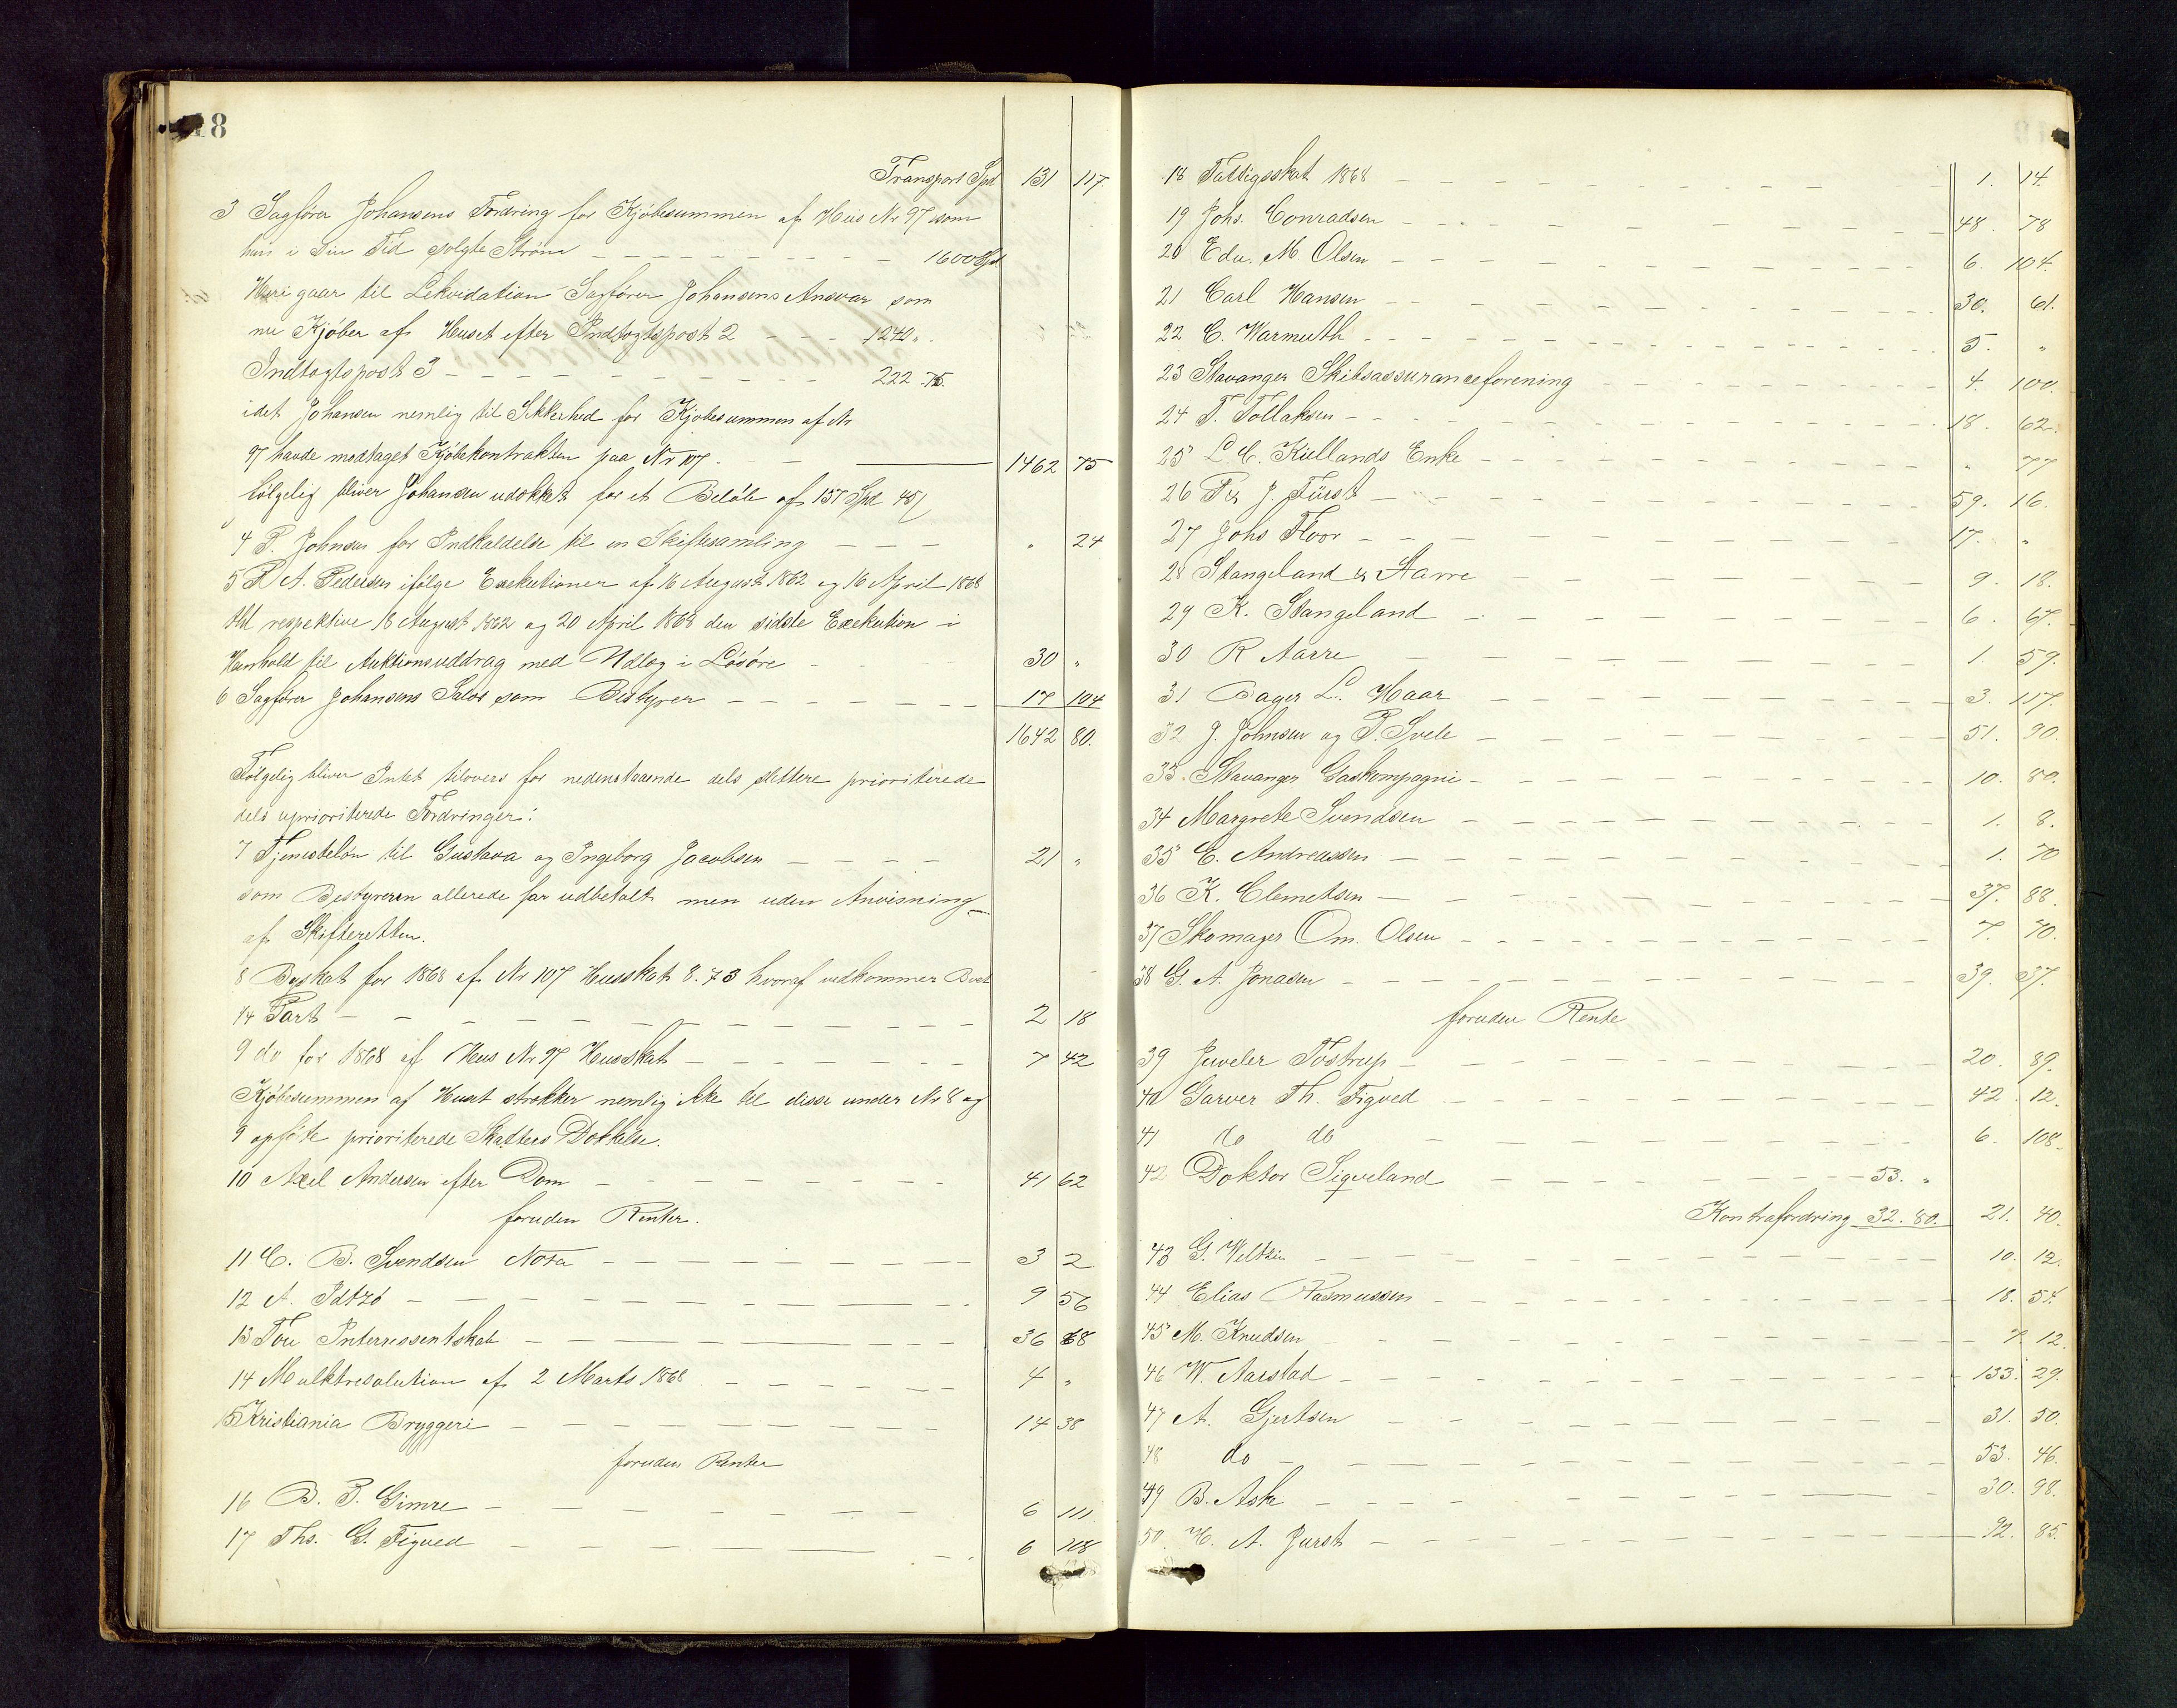 18
Transport Spd 131 117.
3 Sagfører Johansens Fordring for Kjøbesummen af Hus Nr 97 som
han i sin Tid solgte Strøm — 1600 Spd
Heri gaar til Lekvidation Sagfører Johansens Ansvar som
nu Kjøber af Huset efter Indtægtspost 2 — 1240 „.
Indtægtspost 3 — 222.75.
idet Johansen nemlig til Sikkerhed for Kjøbesummen af Nr
97 havde modtaget Kjøbekontrakten paa Nr 107. — 1462 75
følgelig bliver Johansen udækket for et Beløb af 137 Spd 45
4 P. Johnsen for Indkaldelse til en Skiftesamling — „ 24
5 P. A. Pedersen ifølge Exekutioner af 16 August 1862 og 16 April 1868
respektive 18 August 1862 og 20 April 1868 den sidste Exekution i
Henhold til Auktionsuddrag med Udlæg i Løsøre — 30 „
6 Sagfører Johansens Salær som Bestyrer — 17 104
1642 80.
Følgelig bliver Intet tilovers for nedenstaaende dels slettere prioriterede
dels uprioriterede Fordringer:
7 Tjenesteløn til Gustava og Ingeborg Jacobsen — 21 „
som Bestyreren allerede har udbetalt men uden Anvisning
af Skifteretten.
8 Byskat for 1868 af Nr 107 Husskat 8.73 hvoraf vedkommer Boet
1/4 Part — 2 18
9 do for 1868 af Hus Nr 97 Husskat — 7 42
Kjøbesummen af Huset strækker nemlig ikke til disse under Nr 8 og
9 opførte prioriterede Skatters Dækkelse.
10 Axel Andersen efter Dom — 41 62
foruden Renter.
11 C. B. Svendsen Nota — 3 2
12 A. Idtzø — 9 56
13 Tou Interessentskab — 36 68
14 Mulktresolution af 2 Marts 1868 — 4 „
15 Kristiania Bryggeri — 14 38
foruden Renter
16 B. P. Gimre — 6 111
17 Ths. G. Figved — 6 108
18 Fattigskat 1868 — 1. 14.
19 Johs. Conradsen — 48. 78
20 Edv. M. Olsen — 6. 104.
21 Carl Hansen — 30. 61.
22 C. Warmuth — 5. „
23 Stavanger Skibsassuranceforening — 4. 100.
24 T. Tollaksen — 18. 62.
25 L. C. Kiellands Enke — „ 77
26 P & J. Fürst — 59. 16.
27 Johs Floor — 17. „
28 Stangeland & Aarre — 9. 18.
29 K. Stangeland — 6. 67.
30 R Aarre — 1. 59.
31 Bager L. Haar — 3. 117.
32 J. Johnsen og P. Svele — 51. 90.
33. Stavanger Gaskompagni — 10. 80.
34 Margrete Svendsen — 1. 8.
35 E. Andreassen — 1. 70
36 K. Clemetsen — 37. 88.
37 Skomager Om. Olsen — 7. 70.
38 G. A. Jonasen — 39. 37.
foruden Rente
39 Juveler Tostrup — 20. 89.
40 Garver Th. Figved — 42. 12.
41 do do — 6. 108.
42 Doktor Siqveland — 53. „
Kontrafordring 32.80. 21. 40.
43 G. Weltzin — 10. 12.
44 Elias Rasmussen — 18. 54.
45 M. Knudsen — 7. 12.
46 W. Aarstad — 133. 29.
47 A. Gjertsen — 31. 50.
48 do — 53. 46.
49 B. Ask — 30. 98.
50. H. A. Jarst — 92. 85.